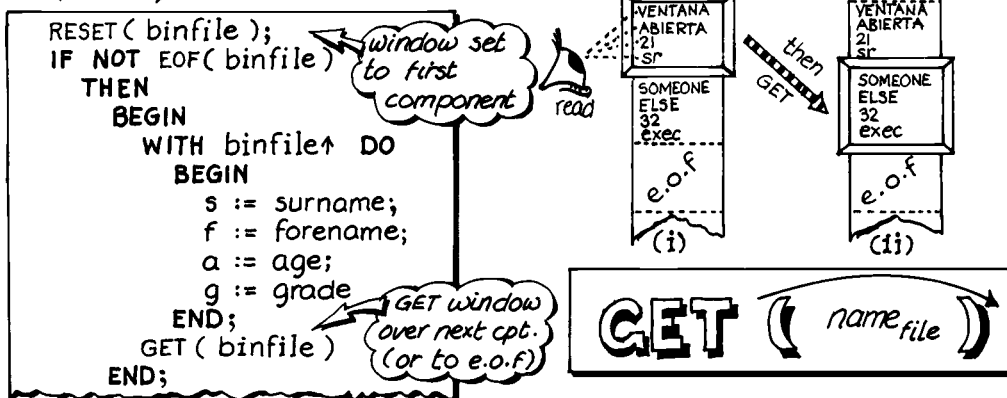 RESET( binfile );
IF NOT EOF( binfile)
THEN
BEGIN
WITH binfile↑ DO
BEGIN
s := surname;
f := forename;
a := age;
g := grade
END;
GET ( binfile )
END;
window set
to first
component
GET window
over next cpt.
(or to e.o.f)
read
VENTANA
ABIERTA
21
sr
SOMEONE
ELSE
32
exec
e.o.f
(i)
then
GET
VENTANA
ABIERTA
21
sr
SOMEONE
ELSE
32
exec
e.o.f
(ii)
GET ( name file )